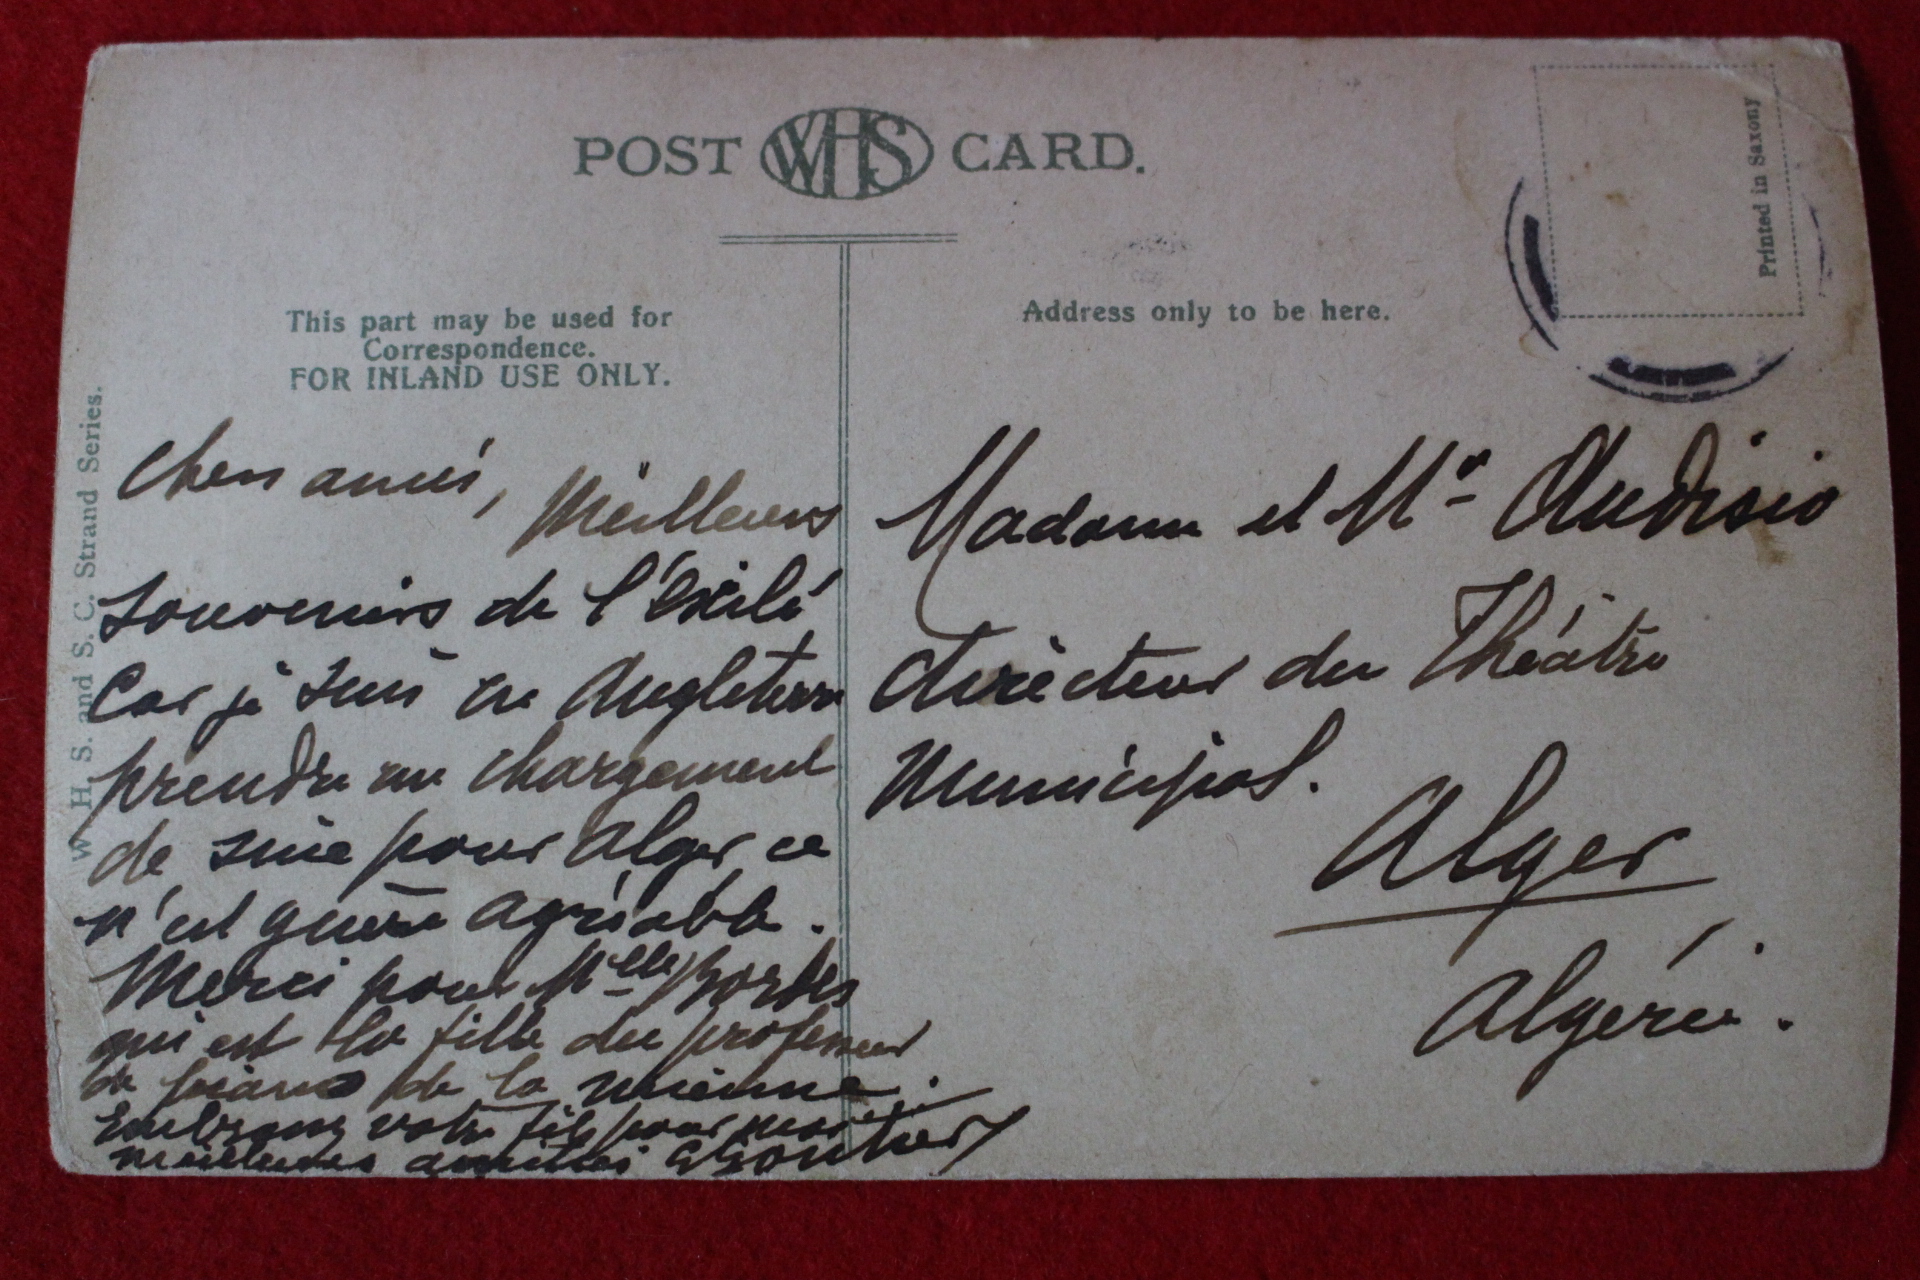 POST WHS CARD.
Printed in Saxony
This part may be used for
Correspondence.
FOR INLAND USE ONLY.
Address only to be here.
W. H. S. and S. C. Strand Series.
Chers amis, Meilleurs
souvenirs de l'Exilé
Car je suis en Angleterre
prendre un chargement
de suie pour Alger ce
n'est guère agréable.
Merci pour Mlle Bordes
qui est la fille du professeur
de piano de la mienne.
Embrassez votre fils pour moi
meilleures amitiés
Madame et Mr Audisio
directeur du Théâtre
Municipal.
Alger
Algérie.